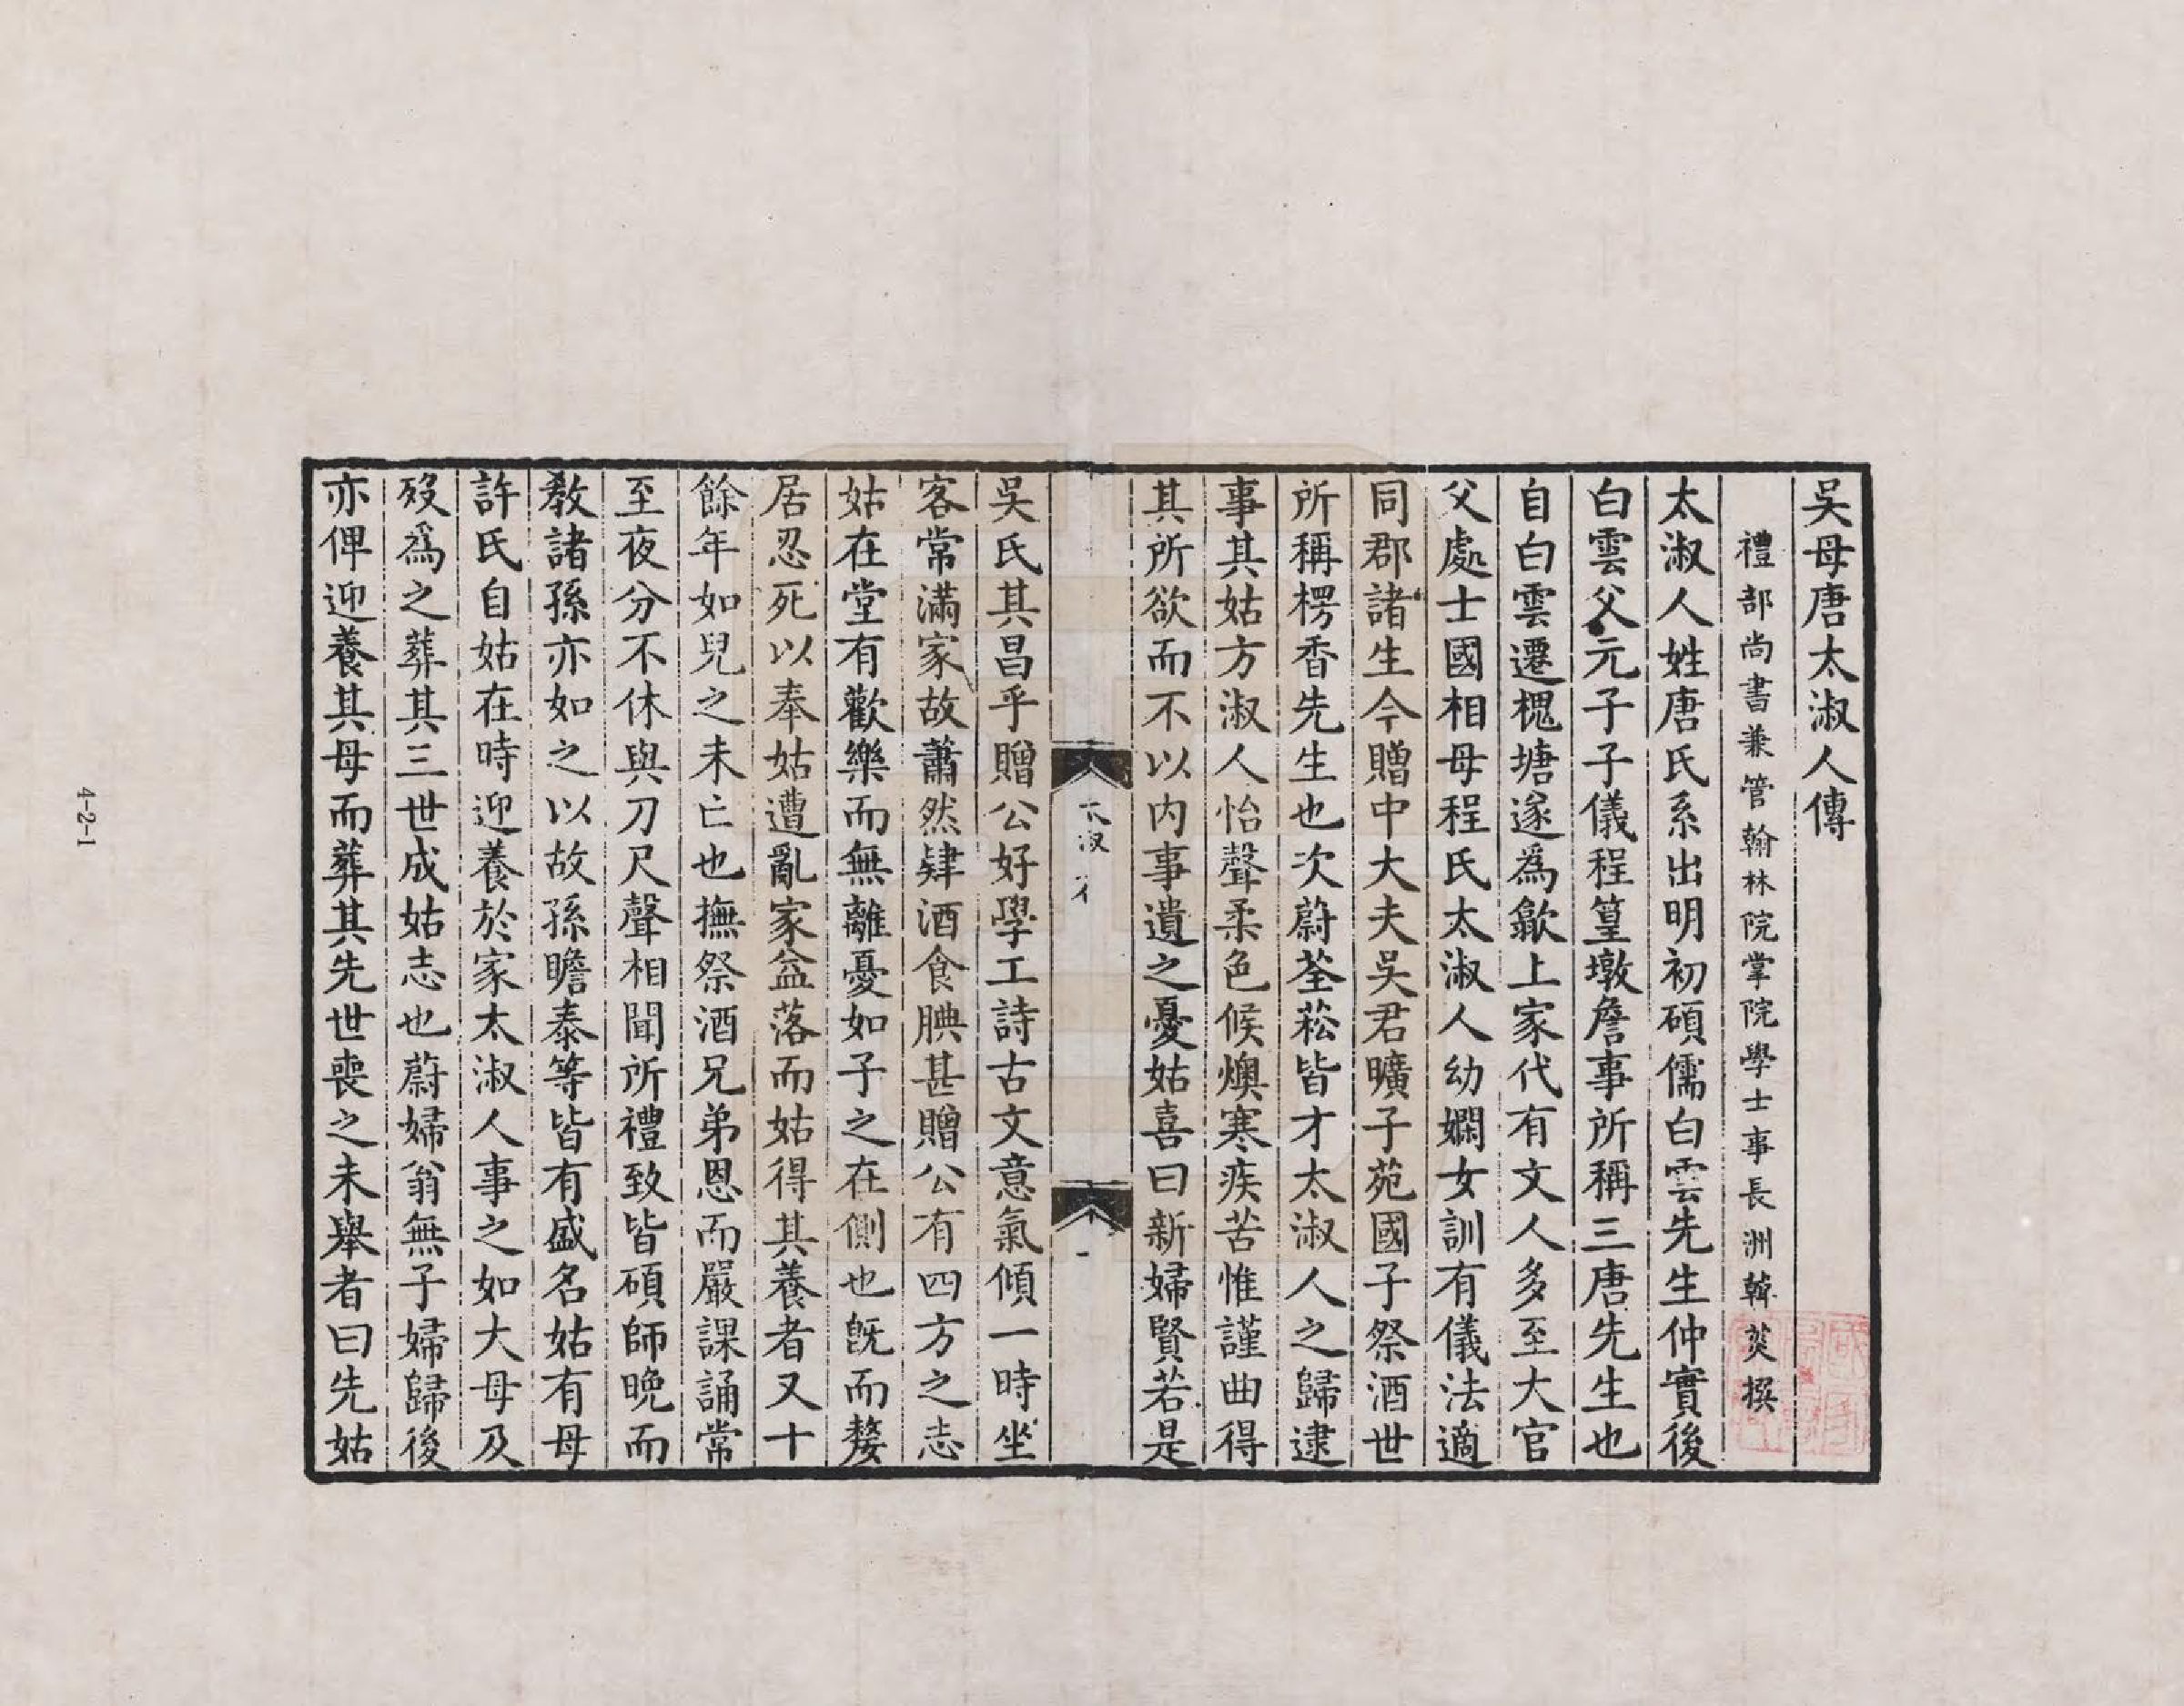 吳母唐太淑人傳
禮部尚書兼管翰林院掌院學士事長洲韓菼撰
太淑人姓唐氏系出明初碩儒白雲先生仲實後
白雲父元子子儀程篁墩詹事所稱三唐先生也
自白雲遷槐塘遂爲歙上家代有文人多至大官
父處士國相母程氏太淑人幼嫻女訓有儀法適
同郡諸生今贈中大夫吳君曠子苑國子祭酒世
所稱楞香先生也次蔚荃菘皆才太淑人之歸逮
事其姑方淑人怡聲柔色候燠寒疾苦惟謹曲得
其所欲而不以内事遺之憂姑喜曰新婦賢若是
太淑
一
吳氏其昌乎贈公好學工詩古文意氣傾一時坐
客常滿家故蕭然肆酒食腆甚贈公有四方之志
姑在堂有歡樂而無離憂如子之在側也旣而嫠
居忍死以奉姑遭亂家益落而姑得其養者又十
餘年如兒之未亡也撫祭酒兄弟恩而嚴課誦常
至夜分不休與刀尺聲相聞所禮致皆碩師晚而
教諸孫亦如之以故孫瞻泰等皆有盛名姑有母
許氏自姑在時迎養於家太淑人事之如大母及
歿爲之葬其三世成姑志也蔚婦翁無子婦歸後
亦俾迎養其母而葬其先世喪之未舉者曰先姑
4-2-1